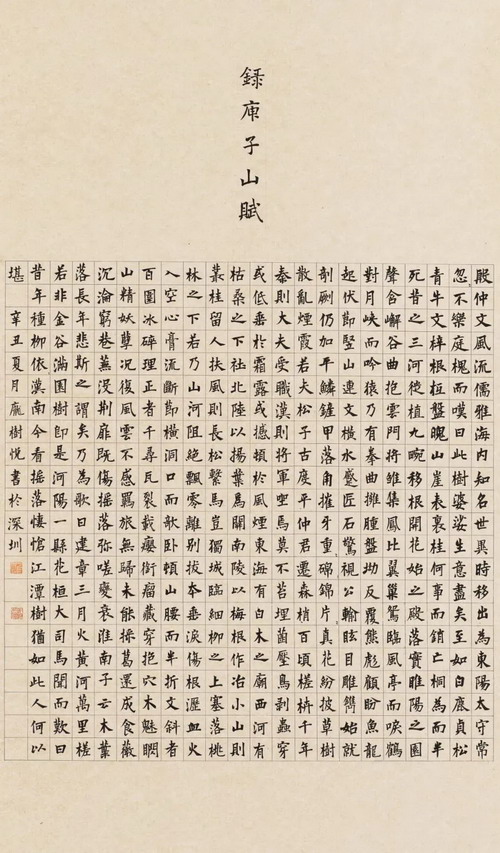 錄庾子山賦
殷仲文風流儒雅海内知名世異時移出為東陽太守常
忽不樂庭槐而嘆曰此樹婆娑生意盡矣至如白鹿貞松
青牛文梓根柢盤魄山崖表裏桂何事而銷亡桐為而半
死昔之三河徙植九畹移根開花始之殿落實睢陽之園
聲含嶰谷曲抱雲門將雛集鳳比翼巢鴛臨風亭而唳鶴
對月峽而吟猿乃有拳曲擁腫盤坳反覆熊彪顧盼魚龍
起伏節豎山連文橫水蹙匠石驚視公輸眩目雕鐫始就
剞劂仍加平鱗鏟甲落角摧牙重碎錦片真花紛披草樹
散亂煙霞若夫松子古度平仲君遷森梢百頃槎枿千年
秦則大夫受職漢則將軍坐焉莫不苔埋菌壓鳥剝蟲穿
或低垂於霜露或撼頓於風煙東海有白木之廟西河有
枯桑之下社北陸以揚葉為關南陵以梅根作冶小山則
叢桂留人扶風則長松繫馬豈獨城臨細柳之上塞落桃
林之下若乃山河阻絕飄零離別拔本垂淚傷根瀝血火
入空心膏流斷節橫洞口而欹臥頓山腰而半折文斜者
百圍冰碎理正者千尋瓦裂載癭銜瘤藏穿抱穴木魅睒
山精妖孽況復風雲不感羈旅無歸未能採葛還成食薇
沉淪窮巷蕪沒荊扉既傷搖落彌嗟變衰淮南子云木葉
落長年悲斯之謂矣乃為歌曰建章三月火黃河萬里槎
若非金谷滿園樹即是河陽一縣花桓大司馬聞而歎曰
昔年種柳依漢南今看搖落悽愴江潭樹猶如此人何以
堪 辛丑夏月龐樹悅書於深圳